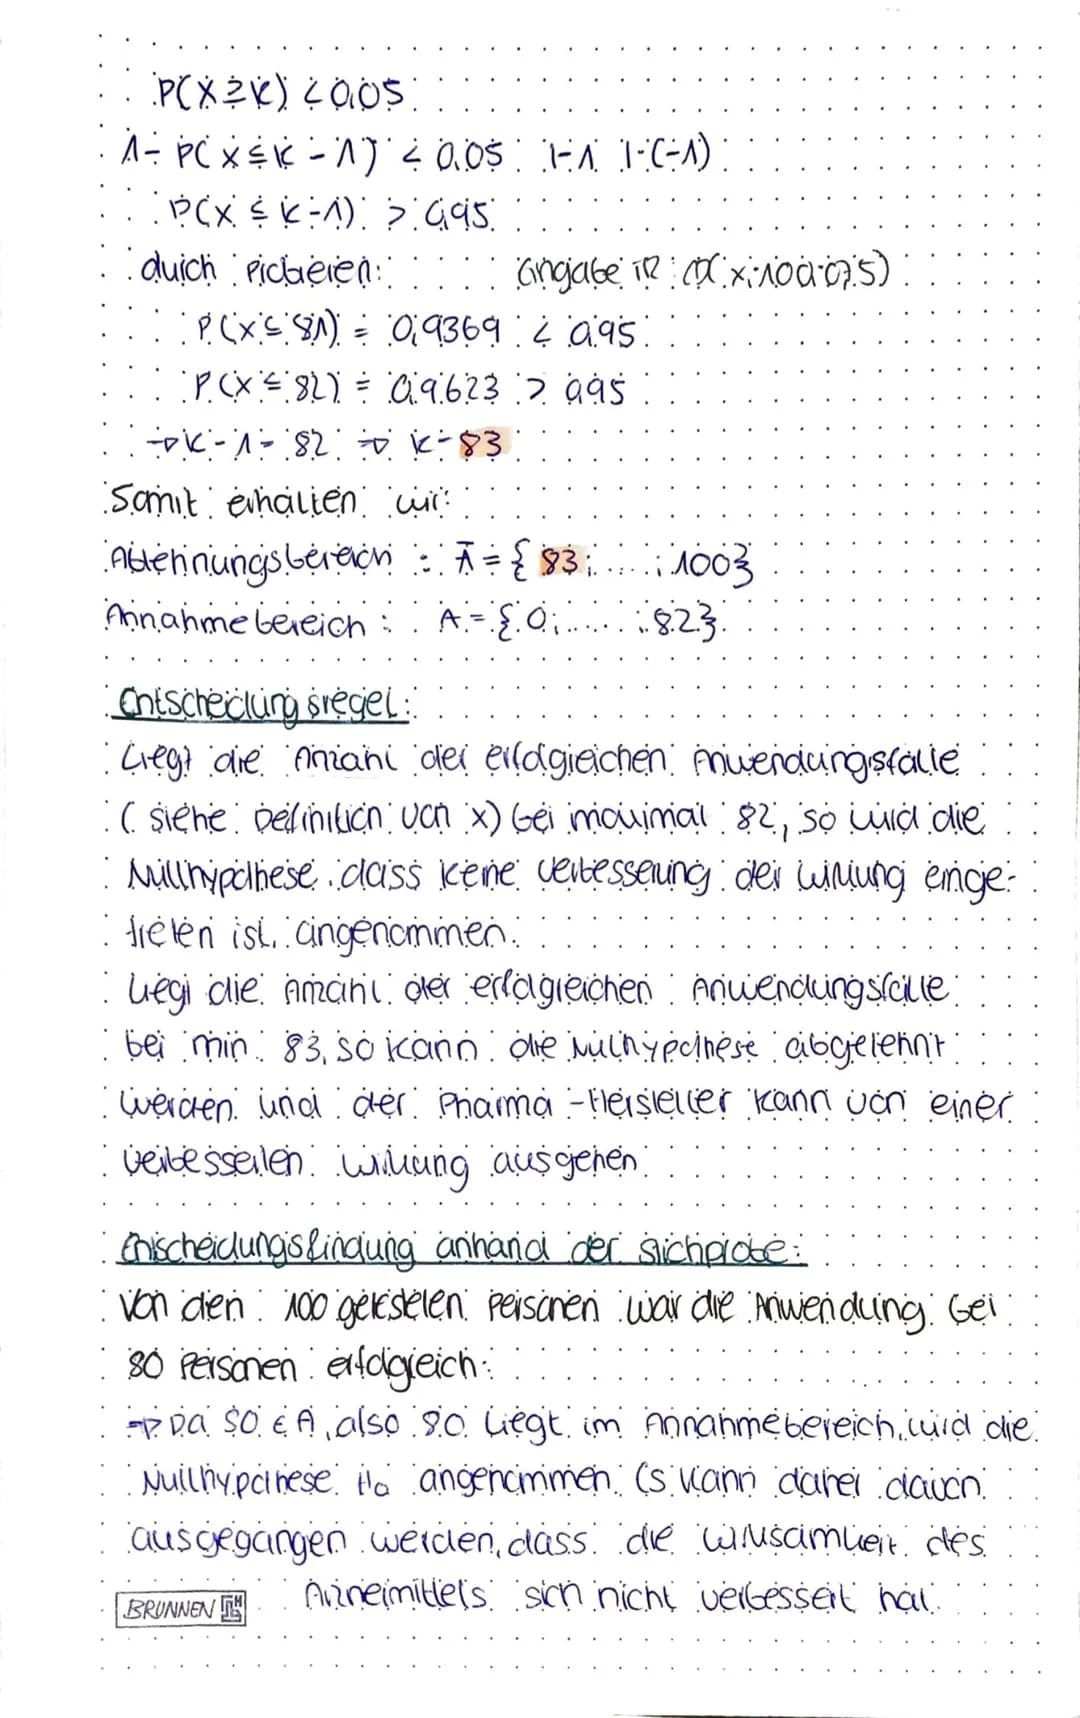 P(X≥K) < 0,05
1- P(X≤K-1) < 0,05 |-1 |·(-1)
P(X ≤ K-1) > 0,95
durch Probieren: Eingabe TR: (X x;100;0,75)
P(X≤81) = 0,9369 < 0,95
P(X≤82) = 0,9623 > 0,95
→ K-1=82 → K=83
Somit erhalten wir:
Ablehnungsbereich : Ā={83;......;100}
Annahmebereich : A={0;......;82}
Entscheidungsregel:
Liegt die Anzahl der erfolgreichen Anwendungsfälle
(siehe Definition von X) bei maximal 82, so wird die
Nullhypothese, dass keine Verbesserung der Wirkung einge-
treten ist, angenommen.
Liegt die Anzahl der erfolgreichen Anwendungsfälle
bei min. 83, so kann die Nullhypothese abgelehnt
werden und der Pharma-Hersteller kann von einer
verbesserten Wirkung ausgehen.
Entscheidungsfindung anhand der Stichprobe:
Von den 100 getesteten Personen war die Anwendung bei
80 Personen erfolgreich:
→ Da 80 ∈ A, also 80 liegt im Annahmebereich, wird die
Nullhypothese H₀ angenommen. Es kann daher davon
ausgegangen werden, dass die Wirksamkeit des
Arzneimittels sich nicht verbessert hat.
BRUNNEN